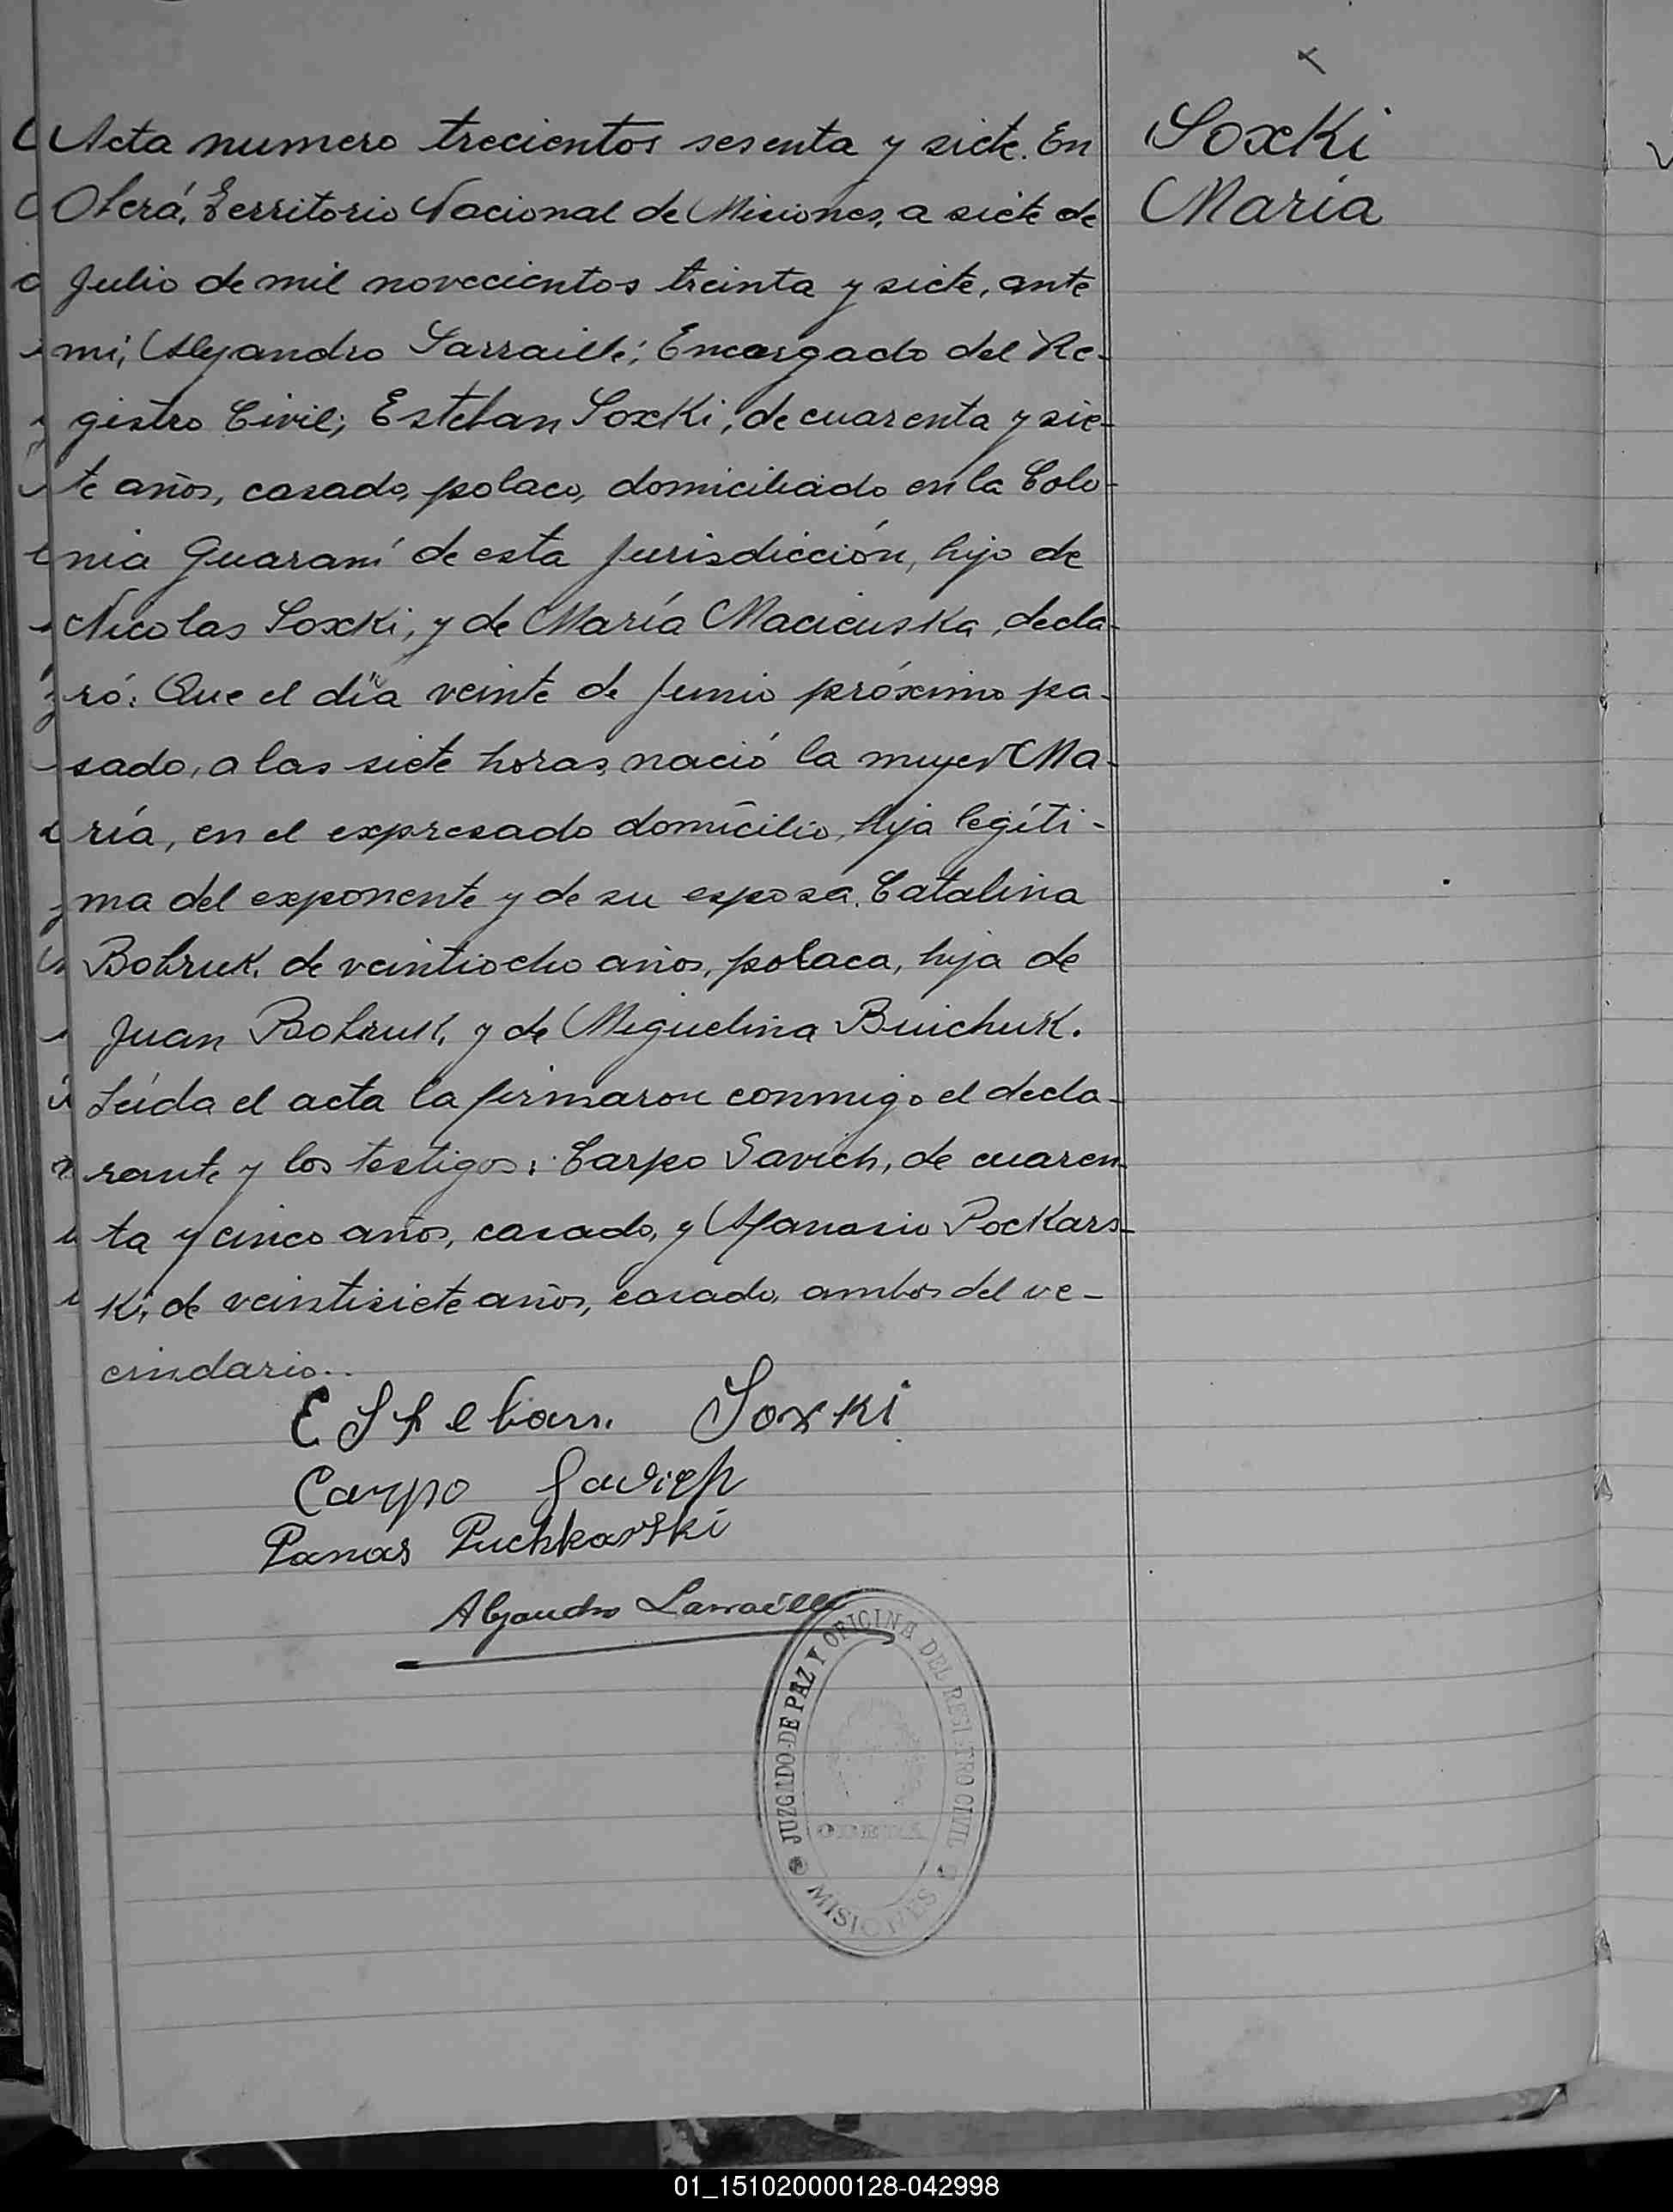 Soxki
María
Acta numero trecientos sesenta y siete. En
Oberá, Territorio Nacional de Misiones, a siete de
Julio de mil novecientos treinta y siete, ante
mi, Alejandro Larraillé; Encargado del Re-
gistro Civil; Esteban Soxki, de cuarenta y sie-
te años, casado, polaco, domiciliado en la Colo-
nia Guaraní de esta Jurisdicción, hijo de
Nicolas Soxki, y de María Macieuska, decla-
ró: Que el día veinte de Junio próximo pa-
sado, a las siete horas, nació la mujer Ma-
ría, en el expresado domicilio, hija legíti-
ma del exponente y de su esposa, Catalina
Bobruk, de veintiocho años, polaca, hija de
Juan Bobruk, y de Miguelina Buichuk.
Leída el acta la firmaron conmigo el decla-
rante y los testigos: Carpo Savich, de cuaren-
ta y cinco años, casado, y Afanasio Pockars-
ki, de veintisiete años, casado, ambos del ve-
cindario..
Esteban Soxki
Carpo Savich
Panas Puchkarski
Alejandro Larraillé
JUZGADO DE PAZ Y OFICINA DEL REGISTRO CIVIL
OBERÁ
MISIONES
01_151020000128-042998